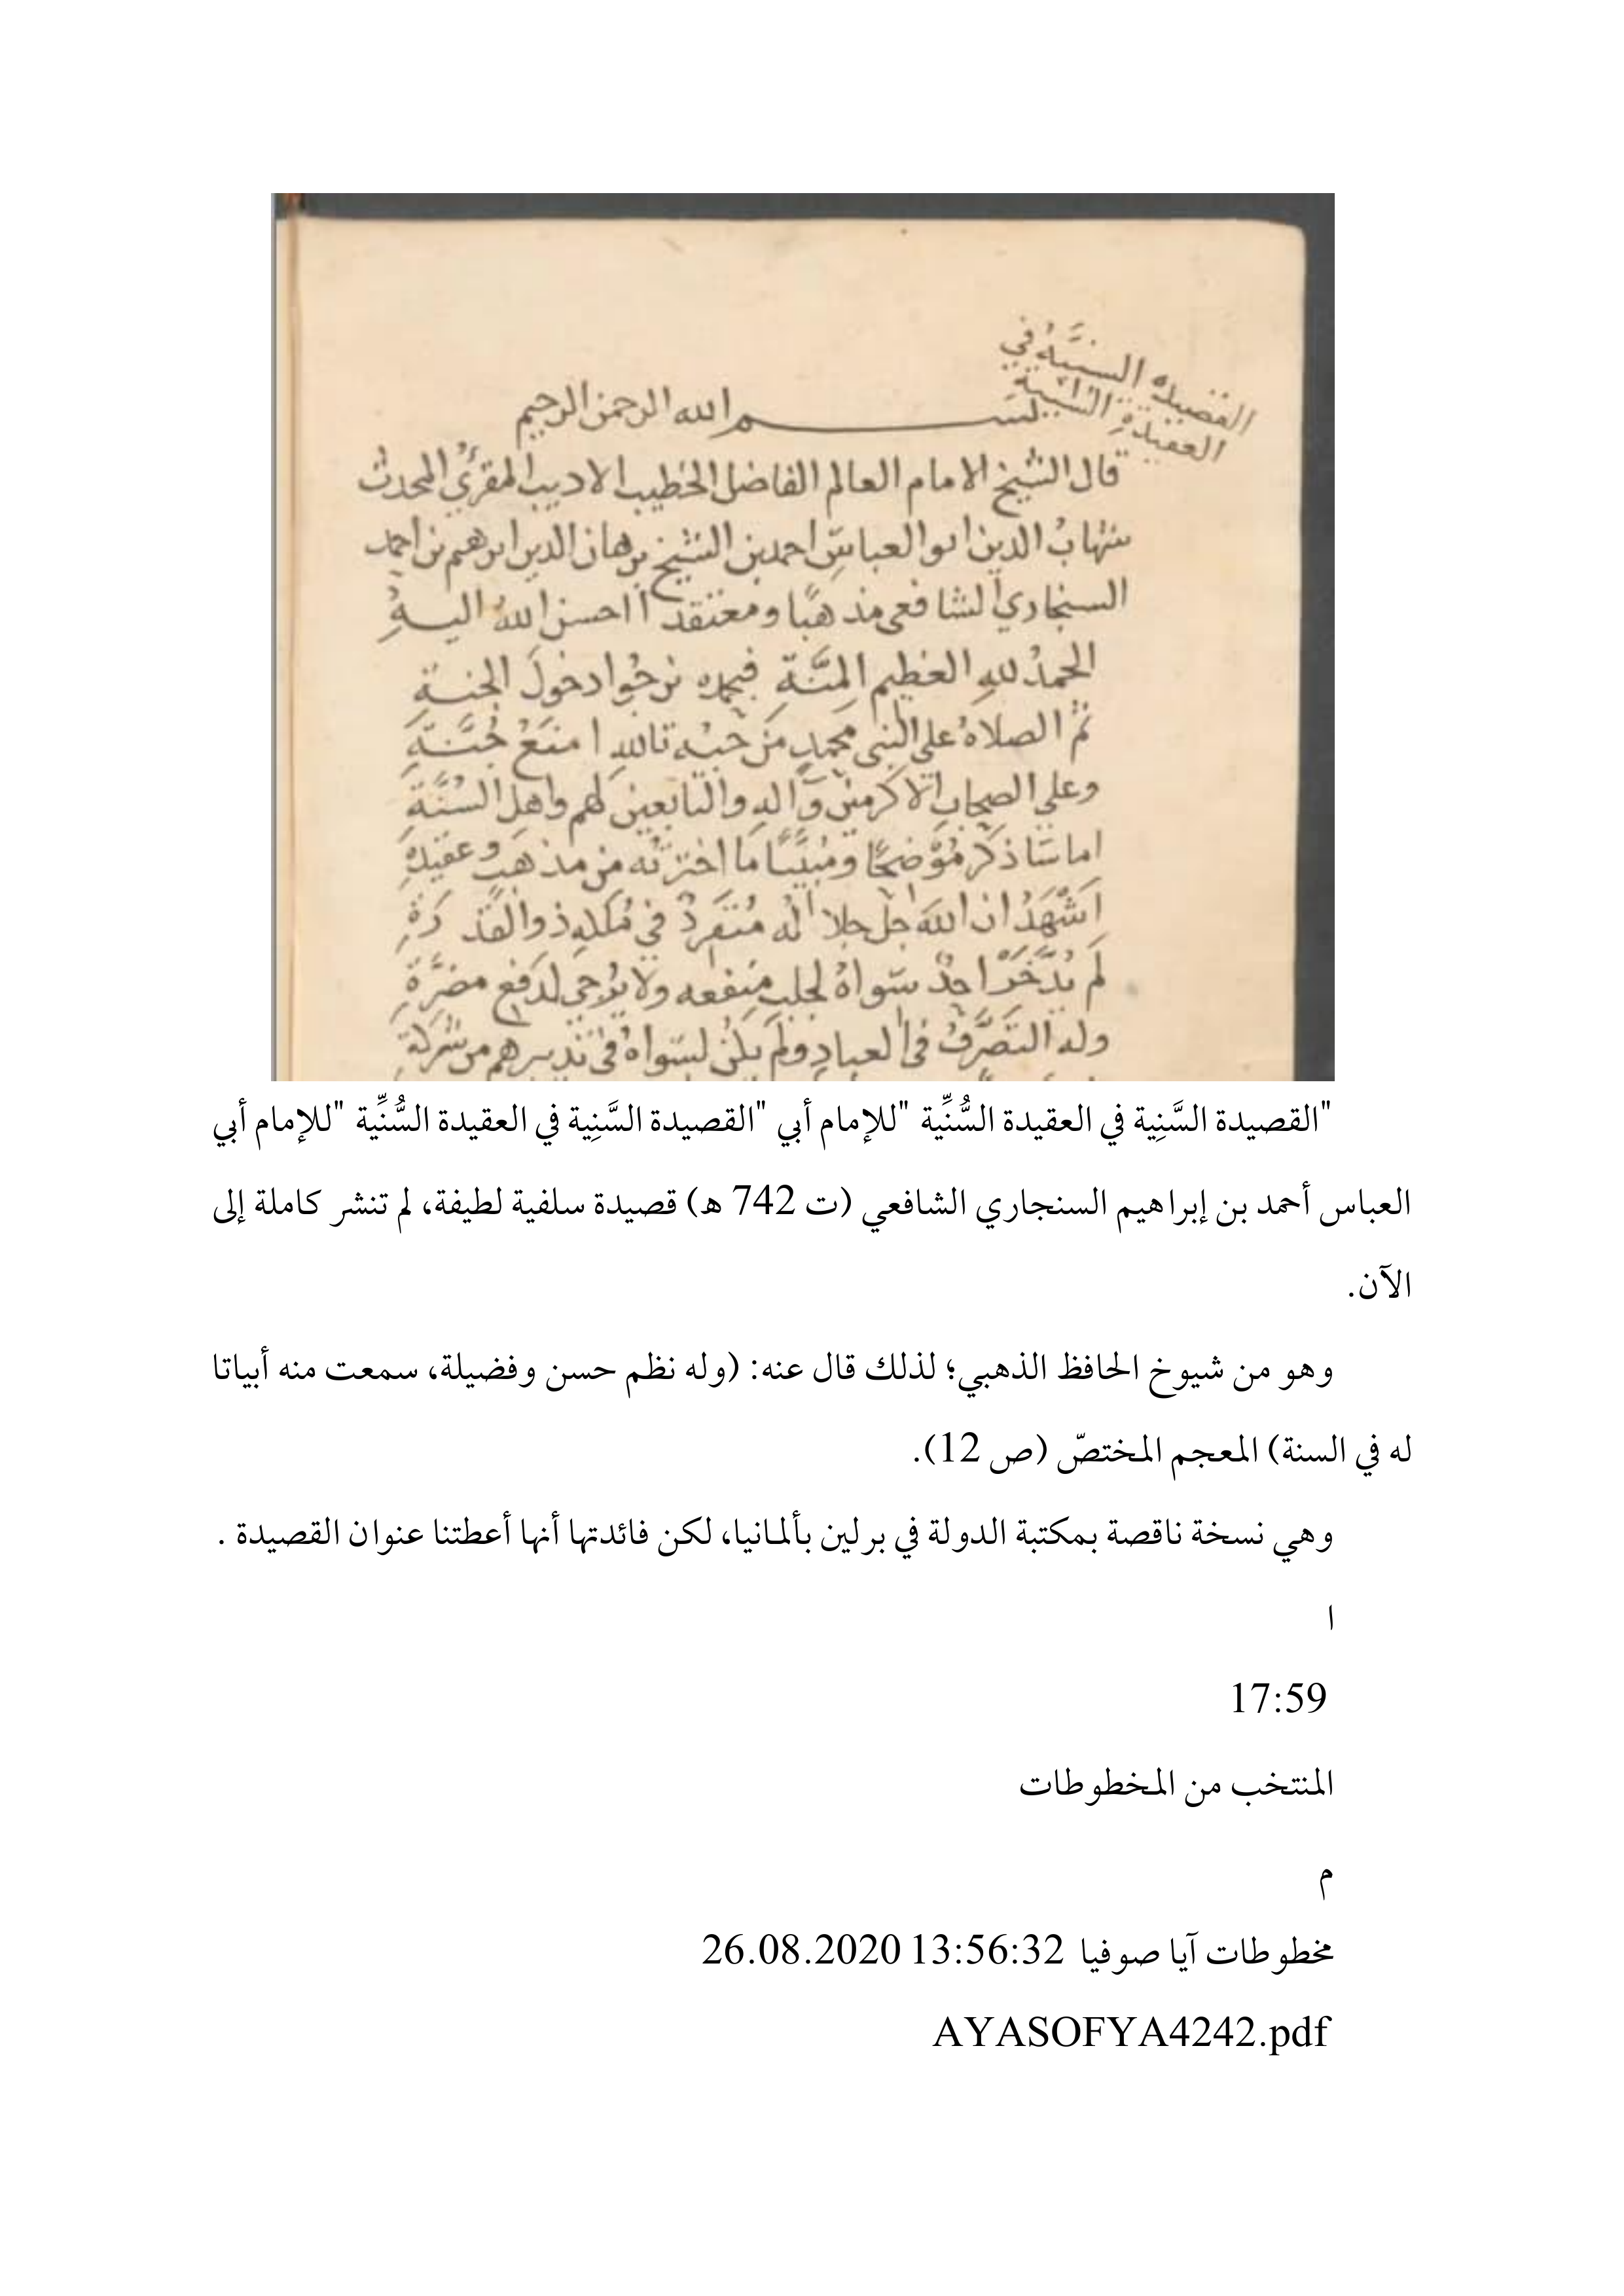 القصيدة السنيَّة في
العقيدة السنية
بسم الله الرحمن الرحيم
قال الشيخ الامام العالم الفاضل الخطيب الاديب المقرئ المحدث
شهابُ الدين ابو العباس احمد بن الشيخ برهان الدين ابرهيم بن احمد
السنجاري الشافعي مذهبًا ومعتقدا احسن اللهُ اليهِ
الحمدُ للهِ العظيم المِنَّةِ فبحمده نرجُوا دخولَ الجنةِ
ثم الصلاةُ على النبي محمدٍ مَن حبُه تاللهِ امنَعُ جُنَّةِ
وعلى الصحابِ الاكرمين وَالهِ والتابعين لهم واهل السُنَّةِ
اما سَاذكرُ مُوْضحًا ومُبيّنًا مَا اخترتُه من مذهَبٍ وعقيدةِ
اَشْهَدُ ان اللهَ جل جلاله مُتفَردٌ في مُلكهِ ذو القُدرَةِ
لَم يُدَّخَرْ احدٌ سَواهُ لجلبِ منفعه ولا يُرجى لدَفع مضرَّةِ
وله التصَرَّفُ في العبادِ ولَم يكنْ لسَواهُ في تدبيرهم من شركةِ
"القصيدة السَّنِية في العقيدة السُّنِّية "للإمام أبي "القصيدة السَّنِية في العقيدة السُّنِّية "للإمام أبي
العباس أحمد بن إبراهيم السنجاري الشافعي (ت 742 ه) قصيدة سلفية لطيفة، لم تنشر كاملة إلى
الآن.
وهو من شيوخ الحافظ الذهبي؛ لذلك قال عنه: (وله نظم حسن وفضيلة، سمعت منه أبياتا
له في السنة) المعجم المختصّ (ص 12).
وهي نسخة ناقصة بمكتبة الدولة في برلين بألمانيا، لكن فائدتها أنها أعطتنا عنوان القصيدة .
ا
17:59
المنتخب من المخطوطات
م
مخطوطات آيا صوفيا 26.08.2020 13:56:32
AYASOFYA4242.pdf